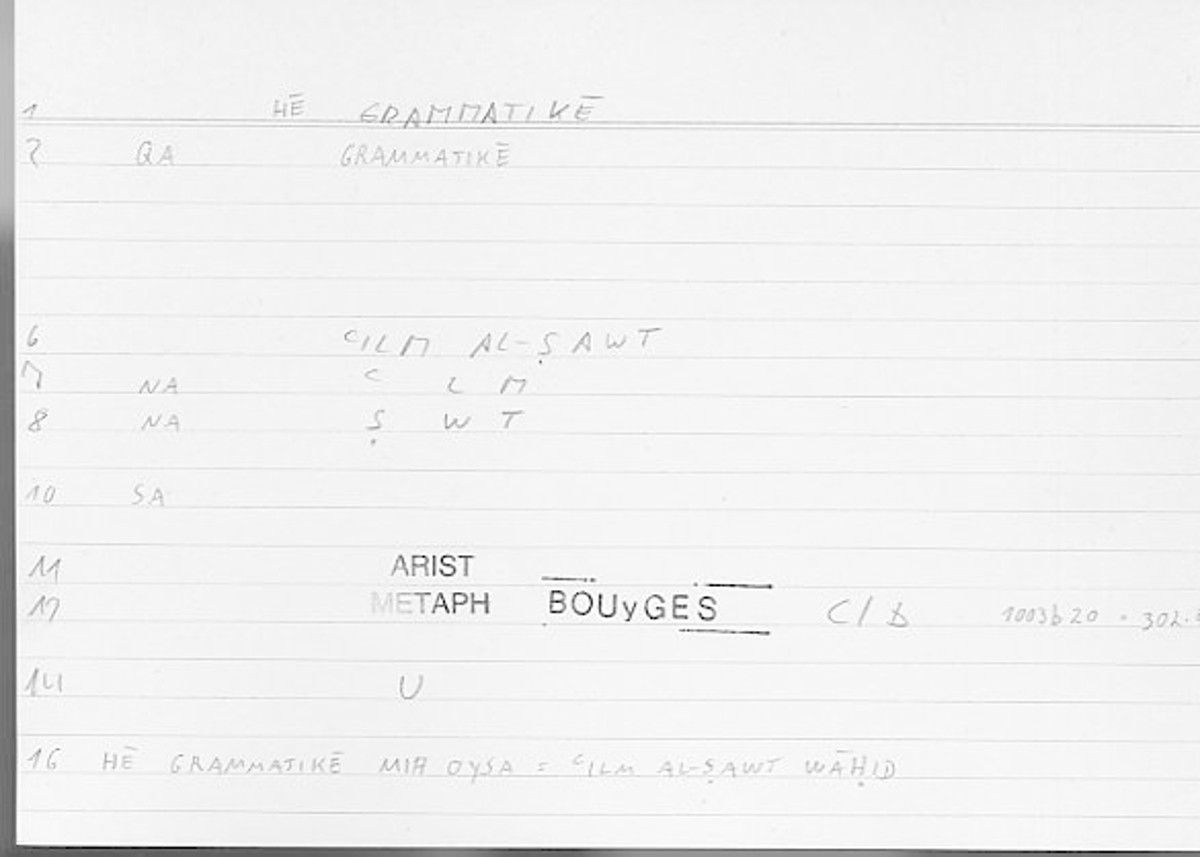 1 HĒ GRAMMATIKĒ
2 QA GRAMMATIKĒ
6 ʿILM AL-ṢAWT
7 NA ʿ L M
8 NA Ṣ W T
10 SA
11 ARIST
12 METAPH BOUyGES C/B 1003b20 302.
14 U
16 HĒ GRAMMATIKĒ MIA OYSA = ʿILM AL-ṢAWT WĀḤID